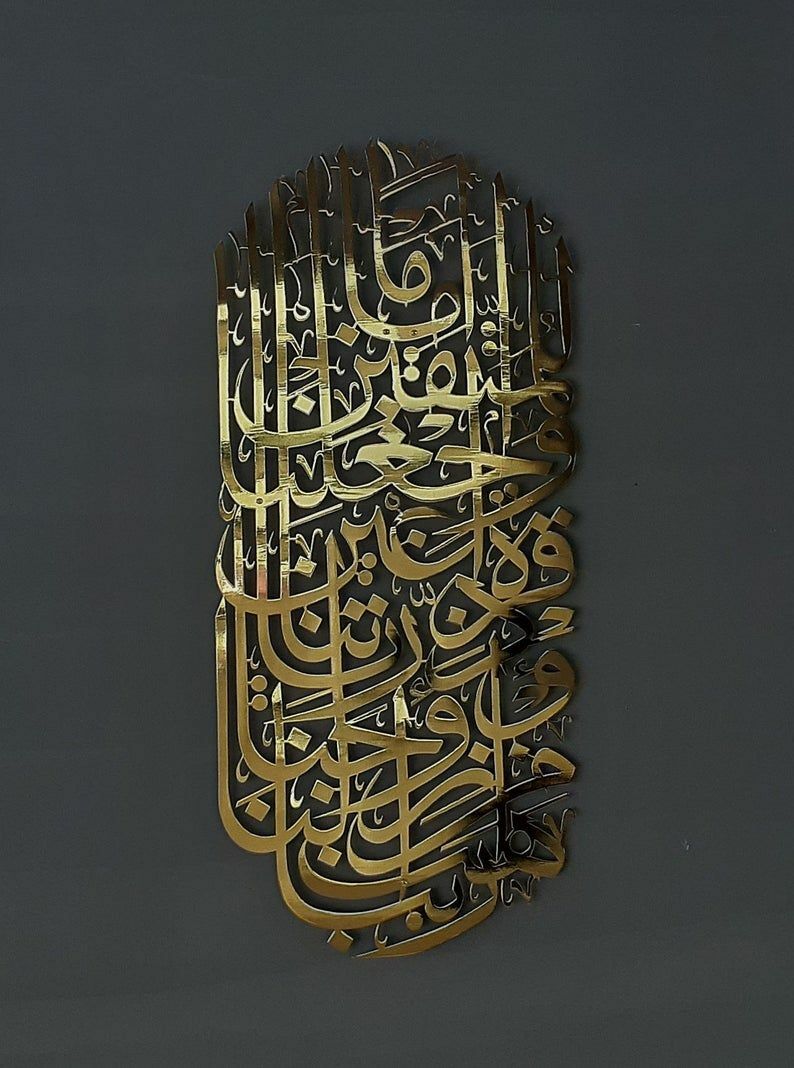 ربنا هب لنا من
أزواجنا
وذرياتنا
قرة أعين
واجعلنا
للمتقين
إماما